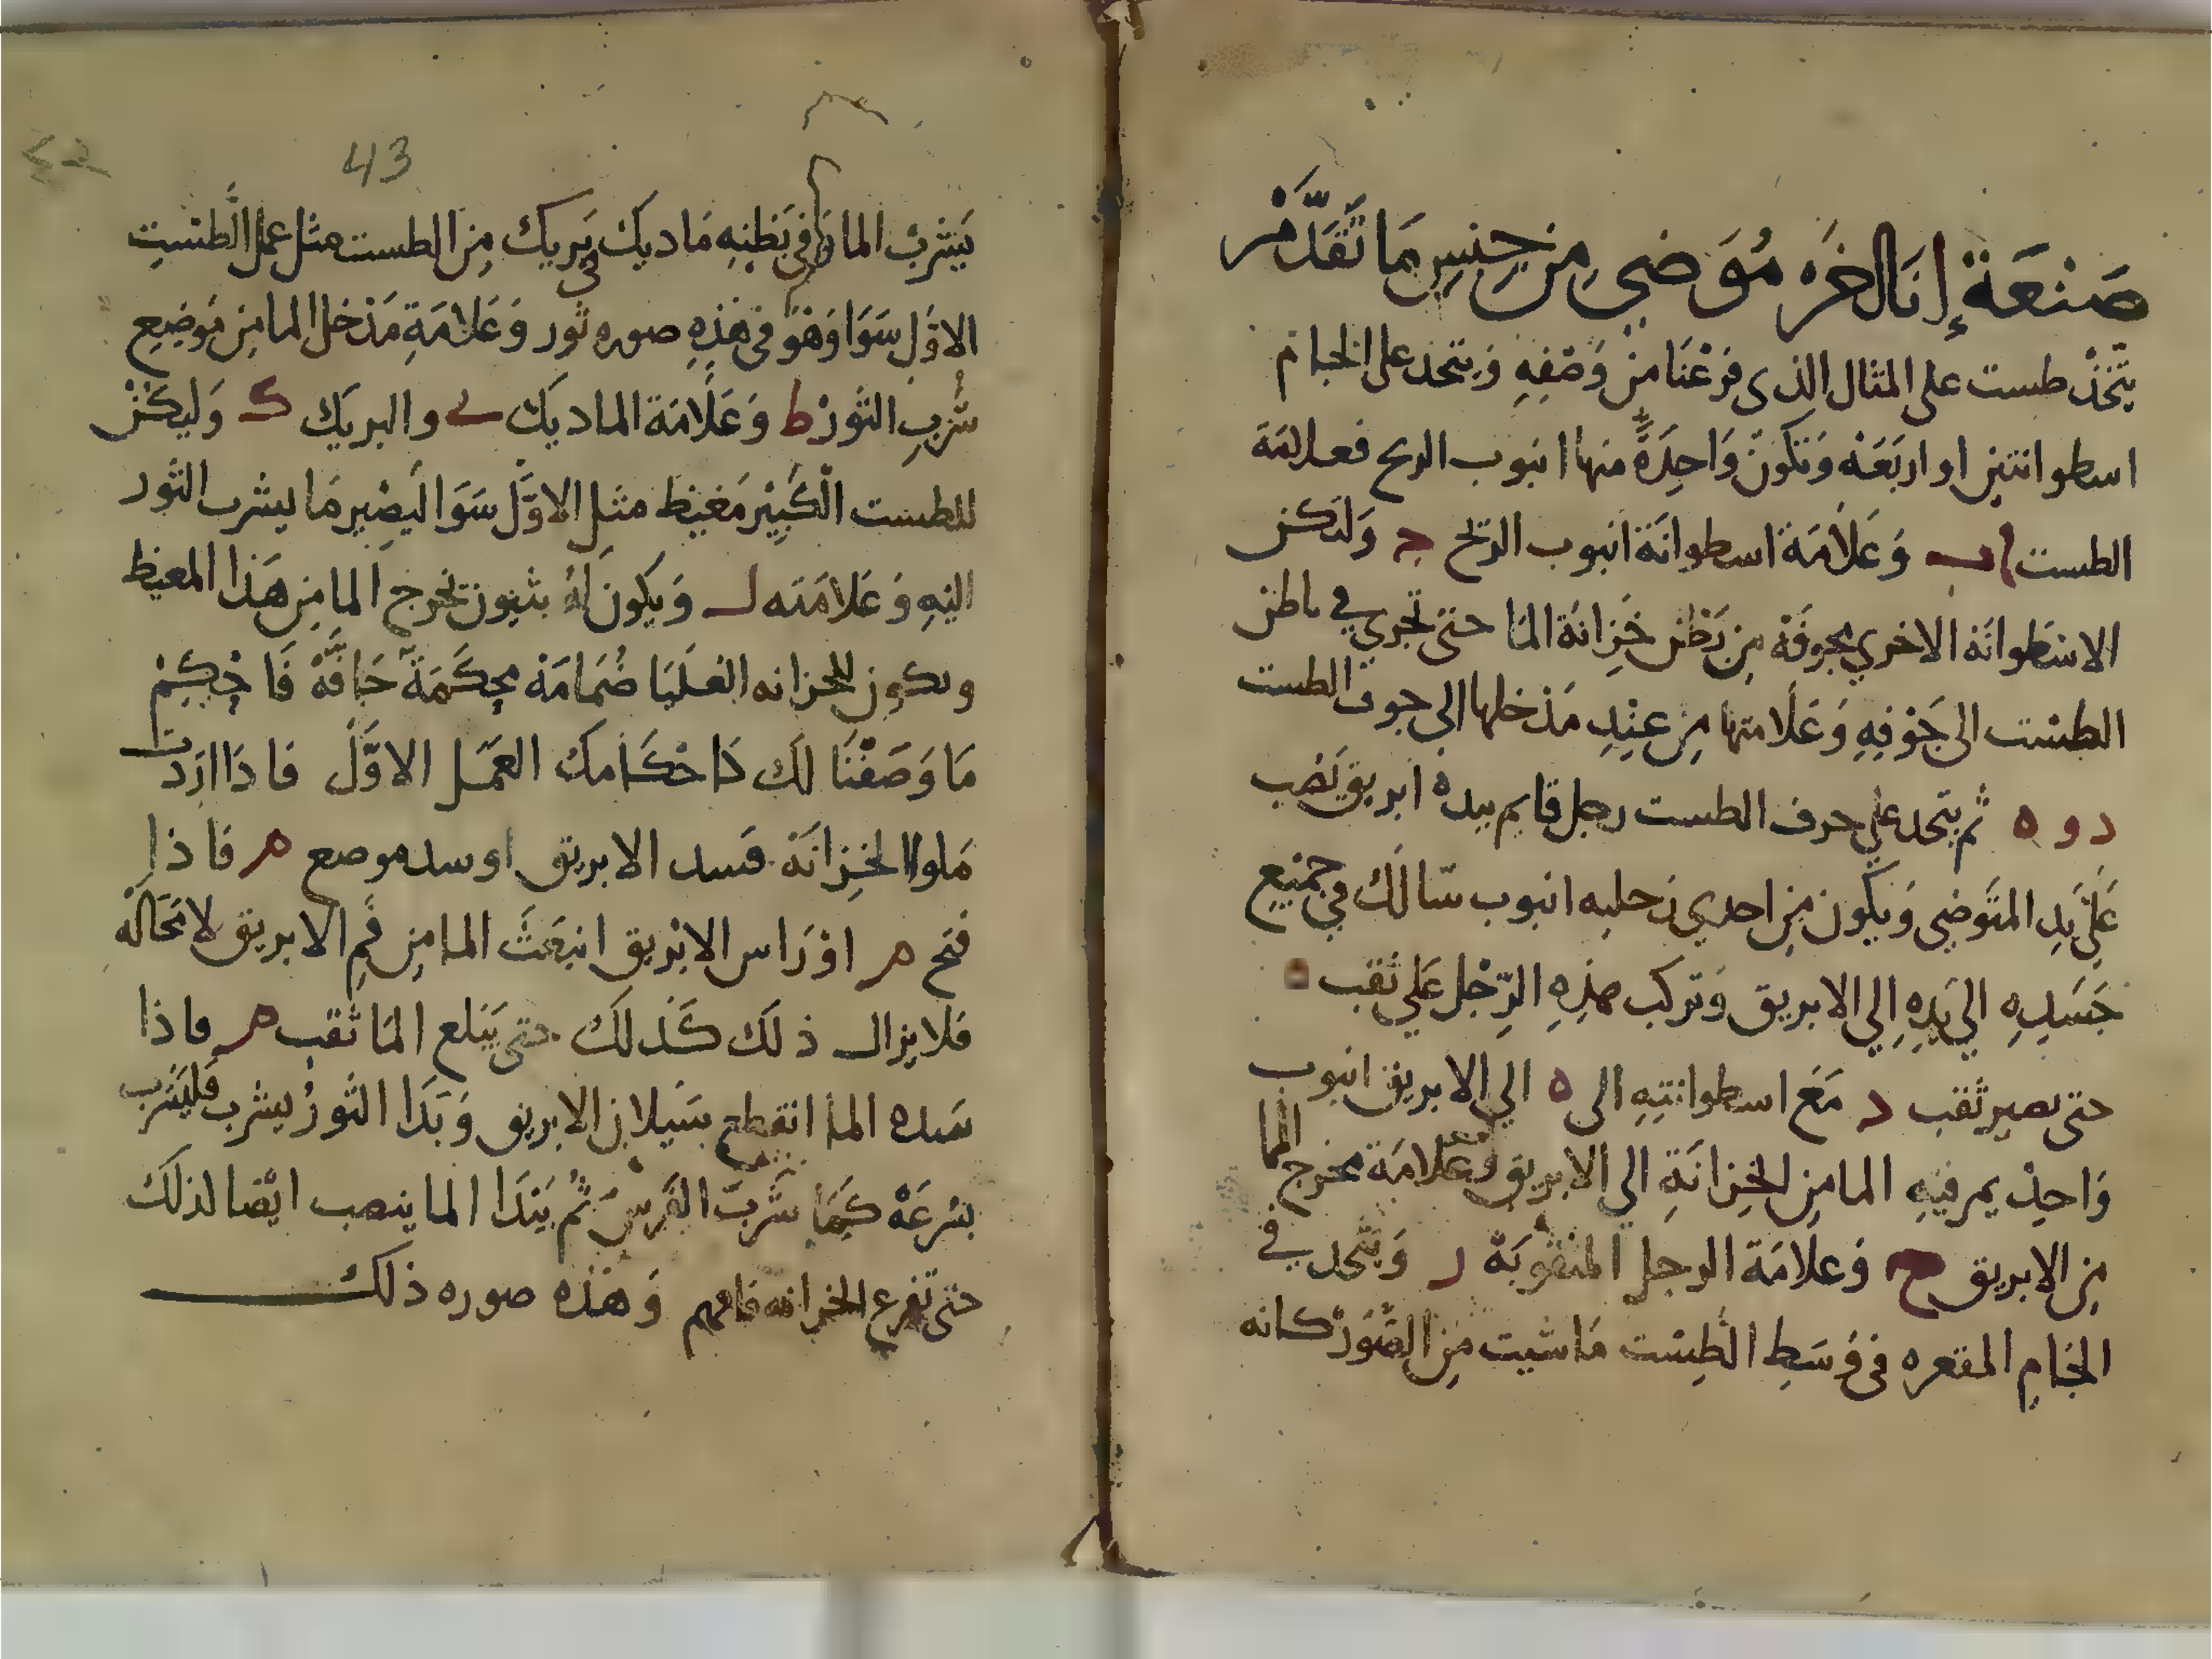 صَنْعَةُ إِنَا لخَره مُوَضي مِن جِنسِ مَا تَقَدَّمْ
يتّخذْ طست على المثال الذى فرَغْنَا منْ وَصْفِهِ وَيتخد على الجام
اسطوانتين او اربَعَة وَتكونَ وَاحِدَةً منها انبوب الريح فعلامَة
الطست ا ب وَعَلَامَة اسطوانَة انبوب الريح ج وَلتكن
الاسَطوانَة الاخري مجوفَة مِن بَطن خَزانَة المَا حتى تجري في باطن
الطسْت الى جَوْفِهِ وَعَلَامتها مِن عنِدِ مَدْخلها الي جوف الطست
د و ه ثم يتخد علي حرف الطست رجل قايم بيده ابريق يَصُب
عَلي يَدِ المتَوضي وَيكون مِن احدي رَجليه انبوب سَالك في جَميعِ
جَسَدِهِ الي يَدِهِ اِلي الابريق وَتركب هذِهِ الرّجْل عَلي ثقب ه
حتى يصير ثَقب د مَعَ اسطوانتِهِ الى ه الي الابريق انبوب
وَاحِدْ يمر فيهِ الما مِن الخِزانَةِ الي الابريق وَعَلامَة مخرج الما
مِن الابريق ح وَعلَامَة الرجل المنقوبَة ر وَيتّخد في
الجَامِ المقعره فى وَسَطِ الطِسْت مَا شيت مِن الصُّوَرْ كانه
43
يَشربُ الما وَفي بَطنِهِ مَاديك بَريك مِن الطست مثل عمل الطَسْتِ
الاوَّل سَوَا وَهوَ فى هَذِهِ صوره ثور وَعَلَامَةِ مَدْخل الما مِن مَوضِعِ
شُربِ الثَورْ ط وَعَلَامَة الماديك ي والبريَك ك وَليكنْ
للطست الكَبِيْر مَغيَظ مثل الاوَّل سَوَا ليَصِير مَا يشرب الثَور
اليْهِ وَعَلامَته ل وَيكون لهُ بثيون يخرج الما مِن هَذا المغيظ
وىكون للخزانه العلَيَا صُمَامَة محكَمَة حَافَّة فَاحْكِمْ
مَا وَصَفْنَا لَك كَاحْكَامكَ العَمَل الاوَّلَ فاذَا ارَدتَ
مَلو الخِزانَة فسد الابريق او سد موصع م فاذا
فتح م اوْ رَاس الابْريق انبعَثَ الما مِن فَمِ الابريق لا مَحَالَه
فلا يزال ذلك كَذلَك حتى يَبلع المَا ثقب م فاذا
سَده الما انقطع سَيلان الابريق وَبَدَا الثَورُ يشرب فَليَشرَب
بسُرعَة كَمَا شَرِبَ الفَرسُ ثُم يَبْدَا الما ينصب ايْضا لذلكَ
حتى تفرع الخزانه فافهم وَهَذه صوره ذلك